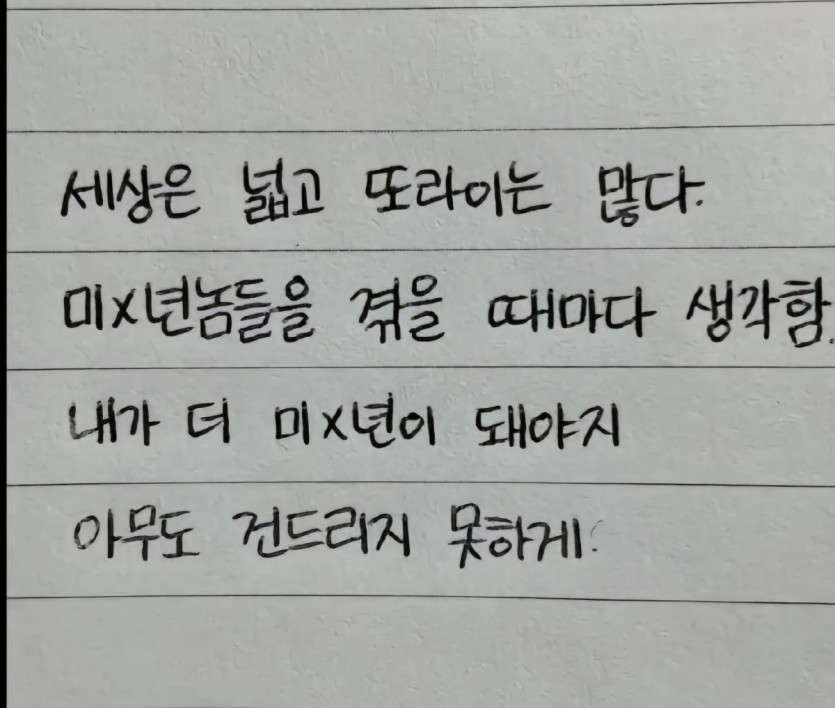 세상은 넓고 또라이는 많다.
미x년놈들을 겪을 때마다 생각함.
내가 더 미x년이 돼야지
아무도 건드리지 못하게.